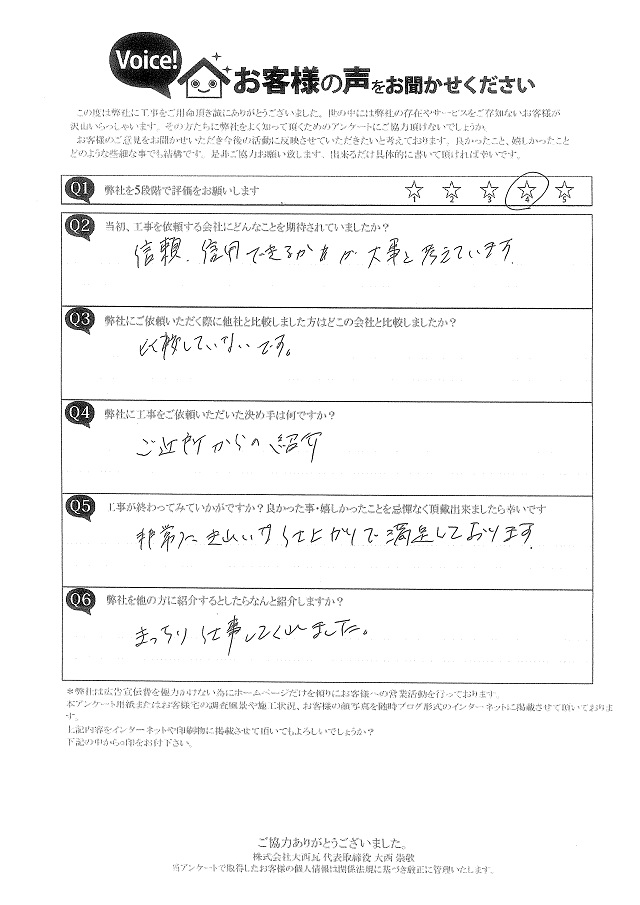 Voice!
お客様の声をお聞かせください
この度は弊社に工事をご用命頂き誠にありがとうございました。世の中には弊社の存在やサービスをご存知ないお客様が
沢山いらっしゃいます。その方たちに弊社をよく知って頂くためのアンケートにご協力頂けないでしょうか。
お客様のご意見をお聞かせいただき今後の活動に反映させていただきたいと考えております。良かったこと、嬉しかったこと
どのような些細な事でも結構です。是非ご協力お願い致します。出来るだけ具体的に書いて頂ければ幸いです。
Q1 弊社を5段階で評価をお願いします ☆1 ☆2 ☆3 ☆4 ☆5
Q2 当初、工事を依頼する会社にどんなことを期待されていましたか?
信頼、信用できるかが大事と考えています。
Q3 弊社にご依頼いただく際に他社と比較しました方はどこの会社と比較しましたか?
比較していないです。
Q4 弊社に工事をご依頼いただいた決め手は何ですか?
ご近所からの紹介
Q5 工事が終わってみていかがですか?良かった事・嬉しかったことを忌憚なく頂戴出来ましたら幸いです
非常に 仕上がりで満足しております。
Q6 弊社を他の方に紹介するとしたらなんと紹介しますか?
仕事してくれました。
*弊社は広告宣伝費を極力かけない為にホームページだけを頼りにお客様への営業活動を行っております。
本アンケート用紙またはお客様宅の調査風景や施工状況、お客様の顔写真を随時ブログ形式のインターネットに掲載させて頂いておりま
す。
上記内容をインターネットや印刷物に掲載させて頂いてもよろしいでしょうか?
下記の中から○印をお付け下さい。
ご協力ありがとうございました。
株式会社大西瓦 代表取締役 大西 崇敬
当アンケートで取得したお客様の個人情報は関係法規に基づき厳正に管理いたします。